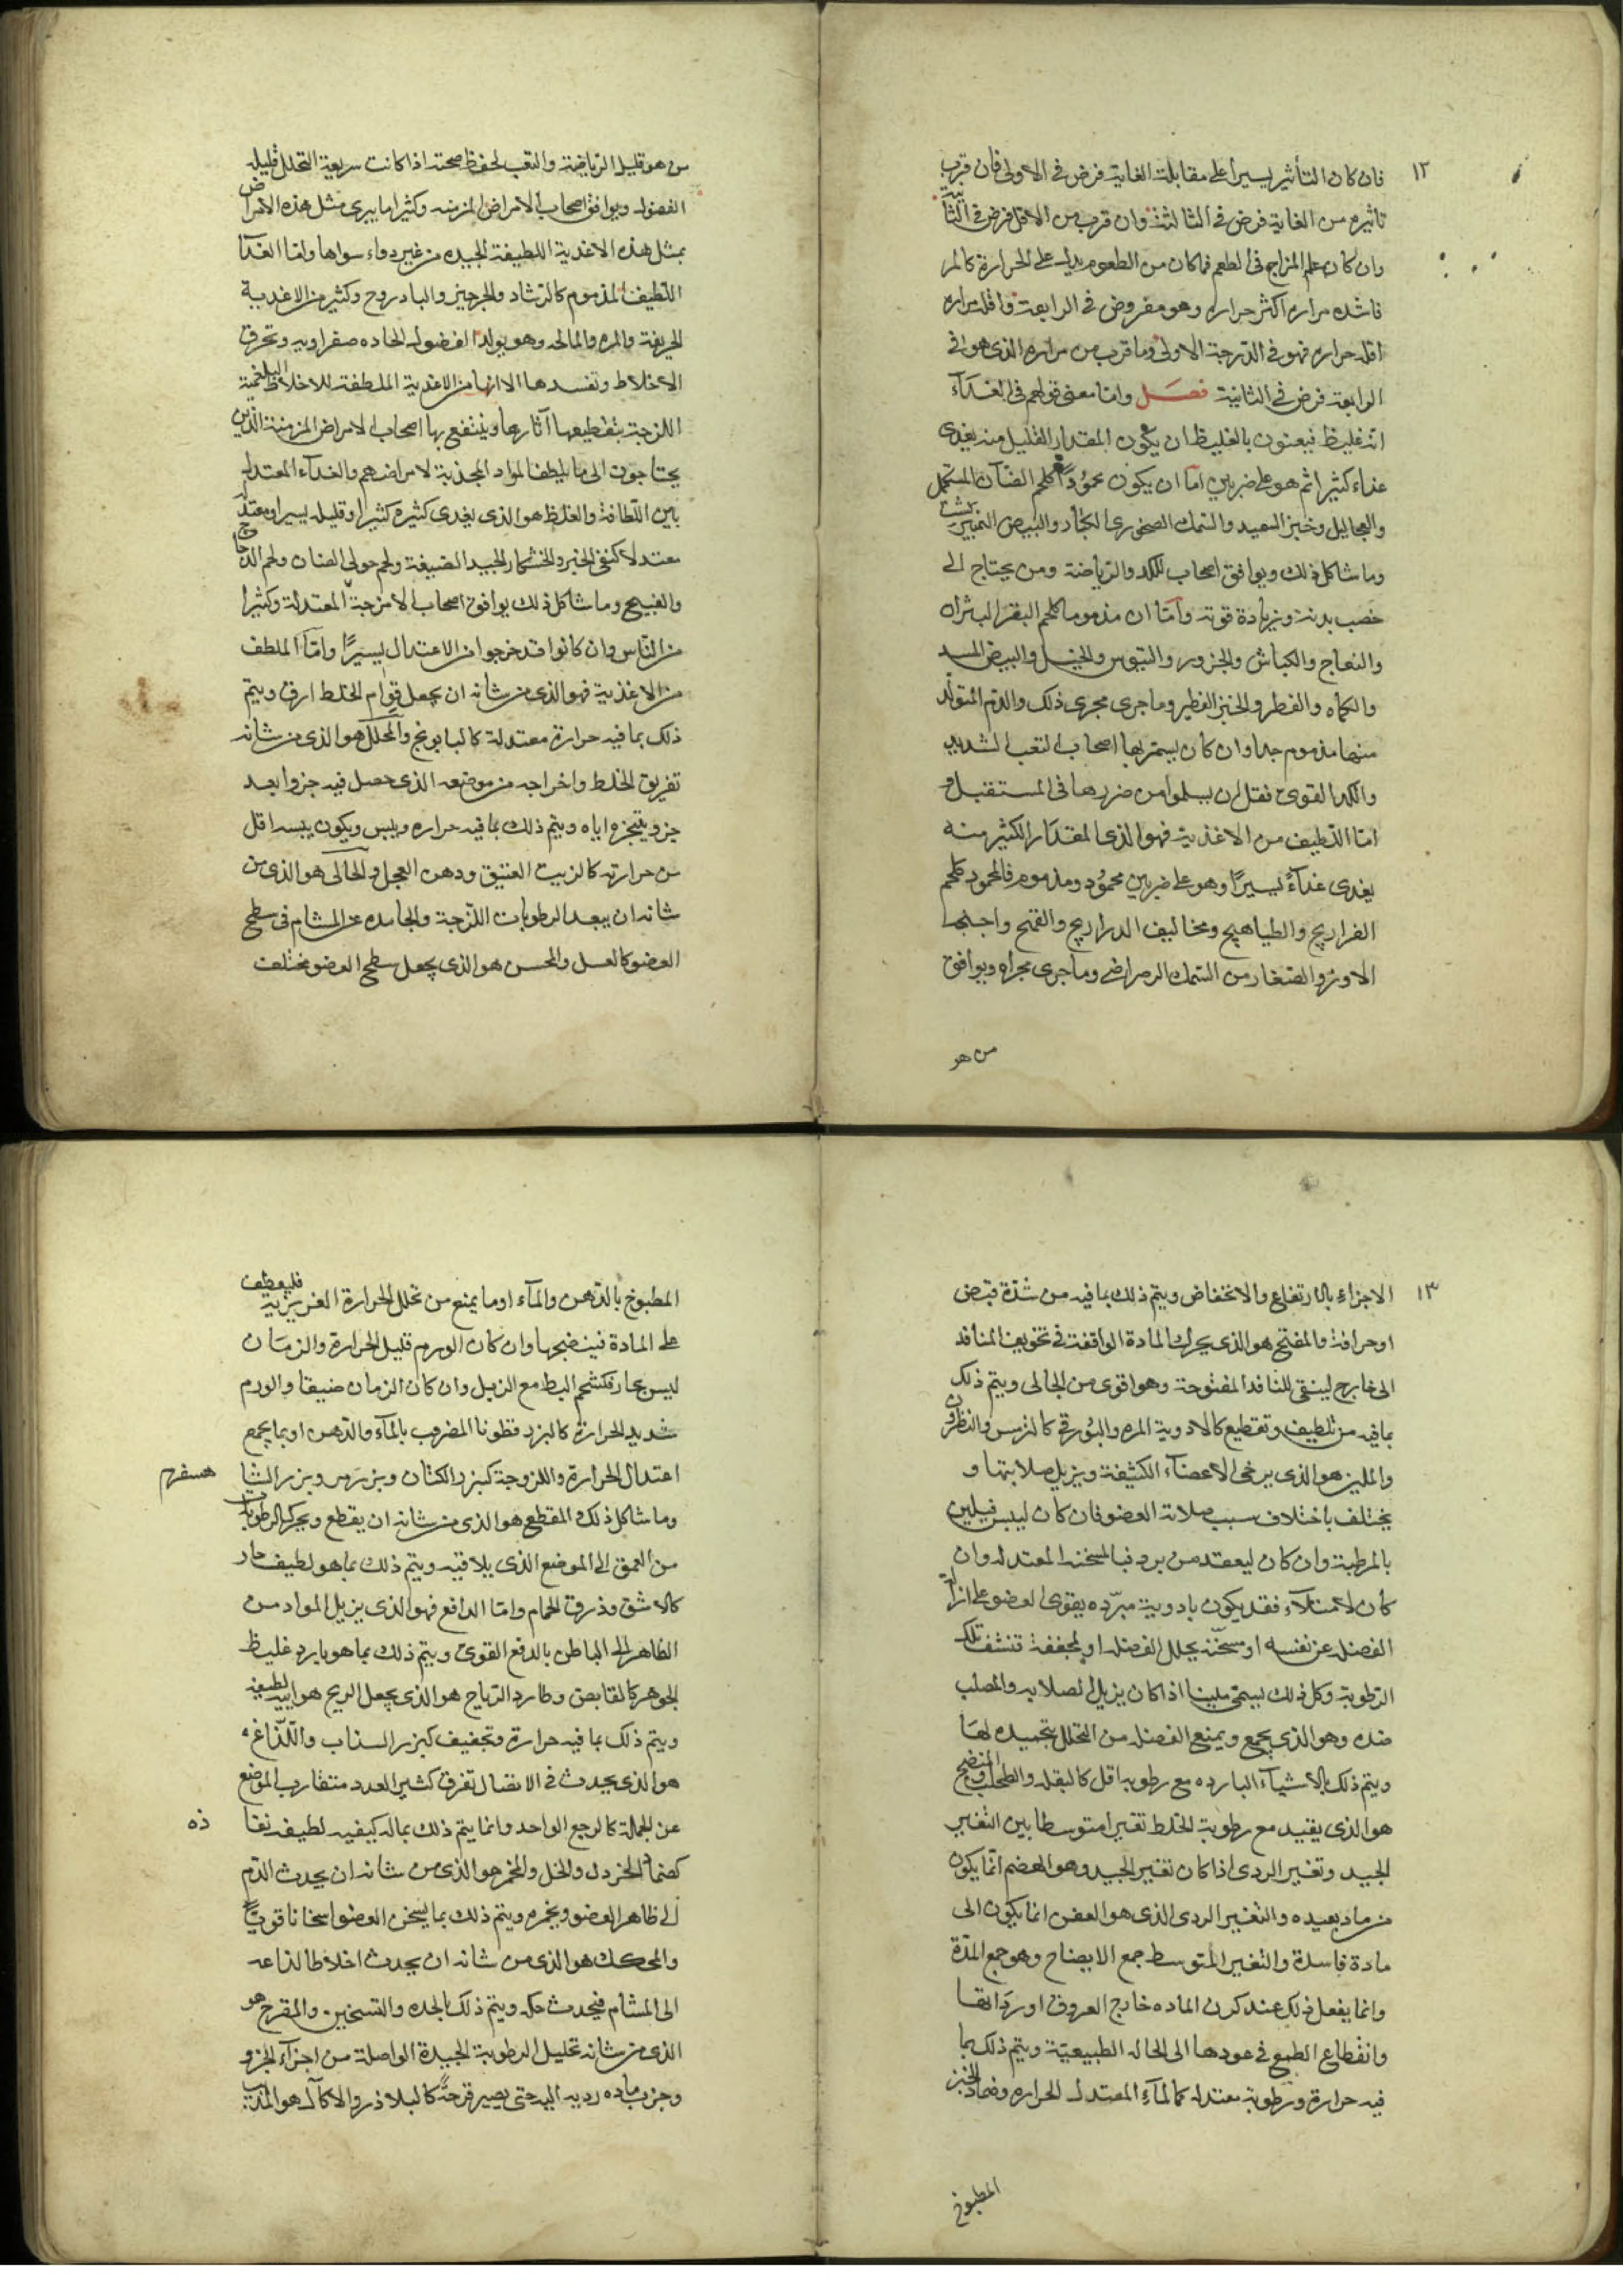 ١٢
فان كان التأثير يسيرا على مقابلة الغاية فرض في الاولى فان قرب
تاثيره من الغاية فرض في الثالثة وان قرب من الاقل فرض في الثانية
وان كان علم المزاج في الطعم فما كان من الطعوم يدل على الحرارة كالمر
فاشده مراره اكثر حراره وهو مفروض في الرابعة واقله مراره
اقله حراره فهو في الدرجة الاولى وما قرب من مراره الذي هو في
الرابعة فرض في الثانية فصل واما معنى قولهم في الغذآء
انه غليظ فيعنون بالغليظ ان يكون المقدار القليل منه يغدى
غداء كثيرا ثم هو على ضربين اما ان يكون محمودًا كلحم الضأن المستكمل
والعجاجيل وخبز السميد والسمك الصخورى الكبار والبيض النميرشت
وما شاكل ذلك ويوافق اصحاب الكد والرياضة ومن يحتاج الى
خصب بدنه وزيادة قوته وأمّا ان مذموما كلحم البقر البثران
والنعاج والكباش والجزور والتيوس والخيل والبيض المسد
والكماه والفطر والخبز الفطير وما جرى مجرى ذلك والدم المتولد
منها مذموم جدا وان كان يستمر بها اصحاب التعب الشديد
والكد القوى فقل ان يسلموا من ضررها في المستقبل و
اما اللطيف من الاغذية فهو الذى المقدار الكثير منه
يغدى غدآءً يسيرًا وهو على ضربين محمود ومذموم فالمحمود كلحم
الفراريج والطياهيج ومخاليف الدراريج والقبج واجنحة
الاوز والصغار من السمك الرضراضي وما جرى مجراه ويوافق
من هو
من هو قليل الرياضة والتعب لحفظ صحته اذا كانت سريعة التحلل قليله
الفضول ويوافق اصحاب الامراض المزمنه وكثيرا ما يبرى مثل هذه الامراض
بمثل هذه الاغدية اللطيفة الجيده من غير دواء سواها واما الغدآ
اللطيف المذموم كالرشاد والجرجير والبادروج وكثير من الاغدية
الحريفة والمره والمالحه وهو يولد الفضول الحاده صفراويه وتحرق
الاخلاط وتفسدها الا انها من الاغدية الملطفة للاخلاط البلغمية
اللزجة بتقطيعها آثارها وينتفع بها اصحاب الامراض المزمنة الذين
يحتاجون الى ما يلطف المواد المجذبة لامراضهم والغدآء المعتدل
بين اللطافة والغلظ هو الذى يغدى كثيره كثيرا وقليله يسيرا ومعتدله
معتدلا كنقي الخبز والخشكار الجيد الصنيعة ولحم حولي الضان ولحم الدجاج
والقبج وما شاكل ذلك يوافق اصحاب الامزجة المعتدلة وكثيرا
من الناس وان كانوا قد خرجوا من الاعتدال يسيرًا وامّا الملطف
من الاغذية فهو الذى من شانه ان يجعل قوام الخلط ارق ويتم
ذلك بما فيه حرارة معتدلة كالبابونج والمحلل هو الذى من شانه
تفريق الخلط واخراجه من موضعه الذى حصل فيه جزوا بعد
جزو يتبخره اياه ويتم ذلك بما فيه حراره ويبس ويكون يبسه اقل
من حرارته كالزيت العتيق ودهن الفجل والجالى هو الذى من
شانه ان يبعد الرطوبات اللزجة والجامده عن المسام في سطح
العضو كالعسل والمخشن هو الذى يجعل سطح العضو مختلف
١٣
الاجزاء بالارتفاع والانخفاض ويتم ذلك بما فيه من شدّة قبض
او حرافة والمفتح هو الذى يحرك المادة الواقفة في تجويف المنافد
الى خارج لينقى المنافد المفتوحة وهو اقوى من الجالى ويتم ذلك
بما فيه من تلطيف وتقطيع كالادوية المره والبورقى كالترمس والنطرون
والملين هو الذى يرخى الاعضآء الكثيفة ويزيل صلابتها و
يختلف باختلاف سبب صلابة العضو فان كان ليبس فيلين
بالمرطبة وان كان لتعقد من برد فبالمسخنه المعتدله وان
كان لامتلاء فقد يكون بادوية مبرّده يقوى العضو على ازالة
الفضله عن نفسه او مسخّنه يحلل الفضله او المجففة تنشف تلك
الرطوبة وكل ذلك يسمى ملينا اذا كان يزيل الصلابه والمصلب
ضده وهو الذى يجمع ويمنع الفضله من التحلل بتجميده لها
ويتم ذلك بالاشيآء البارده مع رطوبه اقل كالبقله والطحلب والمنضج
هو الذى يفيد مع رطوبة الخلط تغيرا متوسطا بين التغير
الجيد وتغير الردى اذا كان تغير الجيد وهو الهضم انما يكون
من ماد بعيده والتغير الردى الذى هو العفن انما يكون الى
مادة فاسدة والتغير المتوسط جمع الانضاج وهو جمع المدّة
وانما يفعل ذلك عند كون الماده خارج العروق او ردائها
وانقطاع الطمع في عودها الى الحاله الطبيعيّة ويتم ذلك بما
فيه حرارة ورطوبة معتدله كالمآء المعتدل الحراره وضماد الخبز
المطبوخ
المطبوخ بالدهن والمآء او ما يمنع من تحلل الحرارة الغريزية فليعطف
على المادة فينضجها وان كان الورم قليل الحرارة والزمان
ليس بحار فكشحم البط مع الزبل وان كان الزمان ضيفا والورم
شديد الحرارة كالبزر قطونا المضروب بالمآء والدهن او بما يجمع
اعتدال الحرارة واللزوجة كبزر الكتان وبزر مرو وبزر الشا هسفرم
وما شاكل ذلك المقطع هو الذى من شانه ان يقطع ويحرك الرطوبة
من العمق الى الموضع الذى يلاقيه ويتم ذلك بما هو لطيف حار
كالاشق وذرق الحمام واما الدافع فهو الذى يزيل المواد من
الظاهر الى الباطن بالدفع القوى ويتم ذلك بما هو بارد غليظ
الجوهر كالقابض وطارد الرياح هو الذى يجعل الريح هوائيه لطيفه
ويتم ذلك بما فيه حرارة وتجفيف كبزر السذاب واللّذاغ
هو الذى يحدث في الاتصال تفرق كثير العدد متقارب الموضع
عن الجملة كالوجع الواحد وانما يتم ذلك بماله كيفيه لطيفه نفا ذه
كضماد الخردل والخل والمحمر هو الذى من شانه ان يحدث الدّم
الى ظاهر العضو ويحمره ويتم ذلك بما يسخن العضو اسخانا قويًّا
والمحكك هو الذى من شانه ان يحدث اخلاطا لذاعه
الى المسام فيحدث حكه ويتم ذلك بالحده والتسخين والمقرح هو
الذى من شانه تحليل الرطوبة الجيدة الواصلة من اجزآء الجزو
وجزب ماده رديه اليه حتى يصير قرحةً كالبلادر والاكال هو المذيب